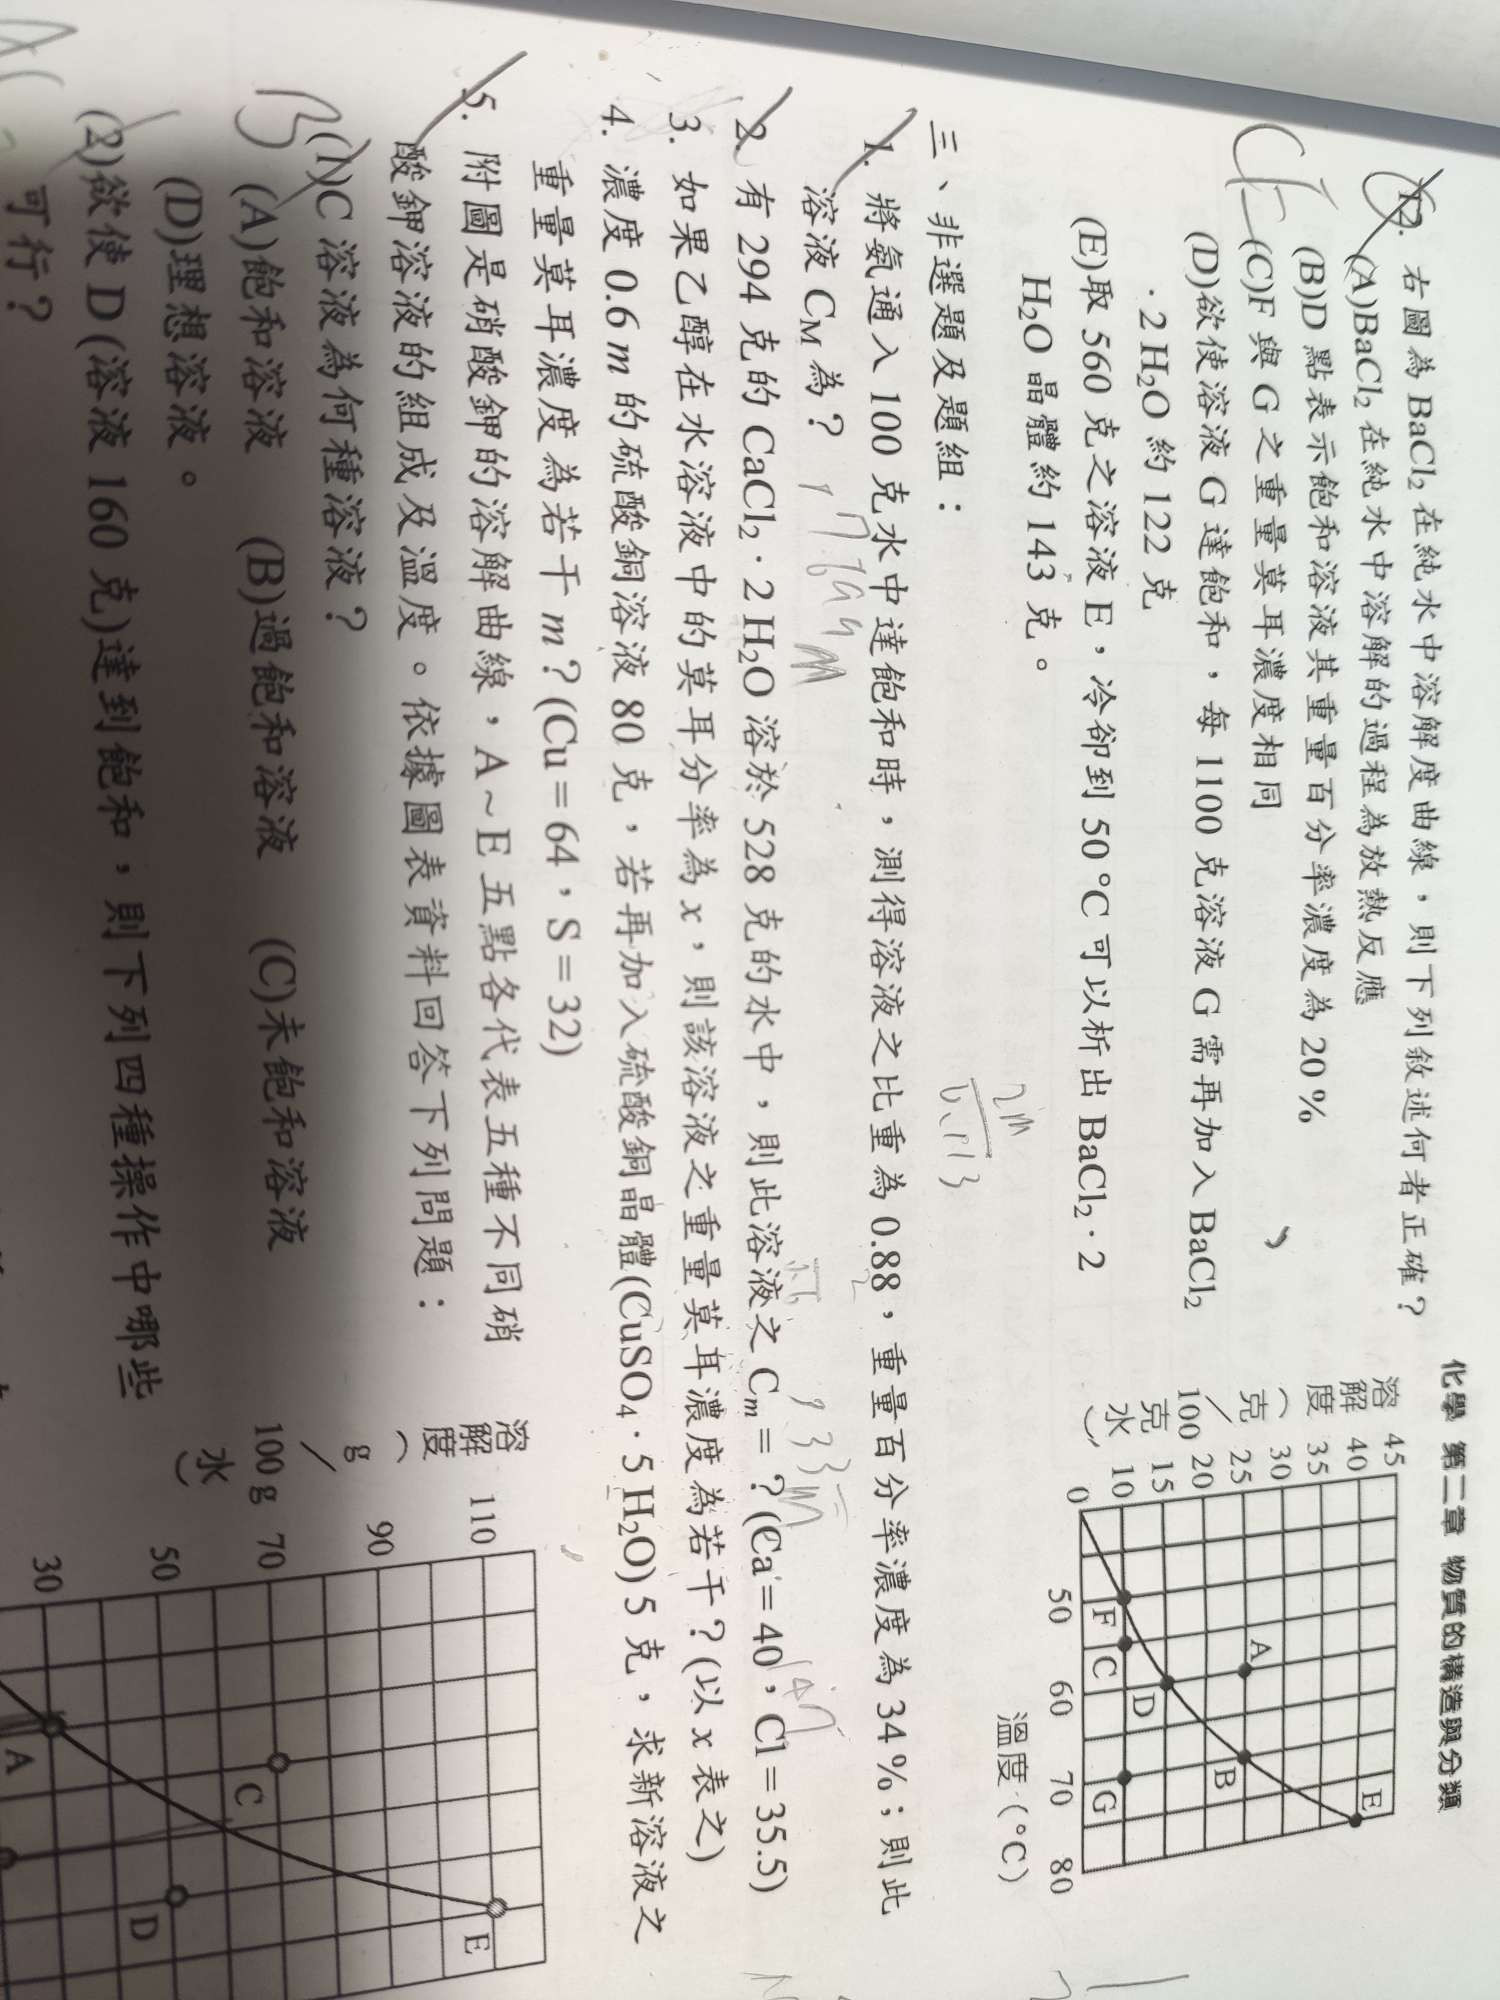 化學 第二章 物質的構造與分類
12. 右圖為 BaCl₂ 在純水中溶解度曲線，則下列敘述何者正確？
(A)BaCl₂ 在純水中溶解的過程為放熱反應
(B)D 點表示飽和溶液其重量百分率濃度為 20%
(C)F 與 G 之重量莫耳濃度相同
(D)欲使溶液 G 達飽和，每 1100 克溶液 G 需再加入 BaCl₂
·2 H₂O 約 122 克
(E)取 560 克之溶液 E，冷卻到 50 °C 可以析出 BaCl₂·2
H₂O 晶體約 143 克。
溶解度(克/100克水)
45
40
35
30
25
20
15
10
0
50 60 70 80
溫度(°C)
A
B
C
D
E
F
G
三、非選題及題組：
1. 將氨通入 100 克水中達飽和時，測得溶液之比重為 0.88，重量百分率濃度為 34%；則此
溶液 C_M 為？
2. 有 294 克的 CaCl₂·2 H₂O 溶於 528 克的水中，則此溶液之 C_m = ？(Ca = 40，Cl = 35.5)
3. 如果乙醇在水溶液中的莫耳分率為 x，則該溶液之重量莫耳濃度為若干？(以 x 表之)
4. 濃度 0.6 m 的硫酸銅溶液 80 克，若再加入硫酸銅晶體(CuSO₄·5 H₂O) 5 克，求新溶液之
重量莫耳濃度為若干 m？(Cu = 64，S = 32)
5. 附圖是硝酸鉀的溶解曲線，A～E 五點各代表五種不同硝
酸鉀溶液的組成及溫度。依據圖表資料回答下列問題：
B
(1)C 溶液為何種溶液？
(A)飽和溶液 (B)過飽和溶液 (C)未飽和溶液
(D)理想溶液。
(2)欲使 D(溶液 160 克)達到飽和，則下列四種操作中哪些
可行？
溶解度(g/100g水)
110
90
70
50
30
A
C
D
E